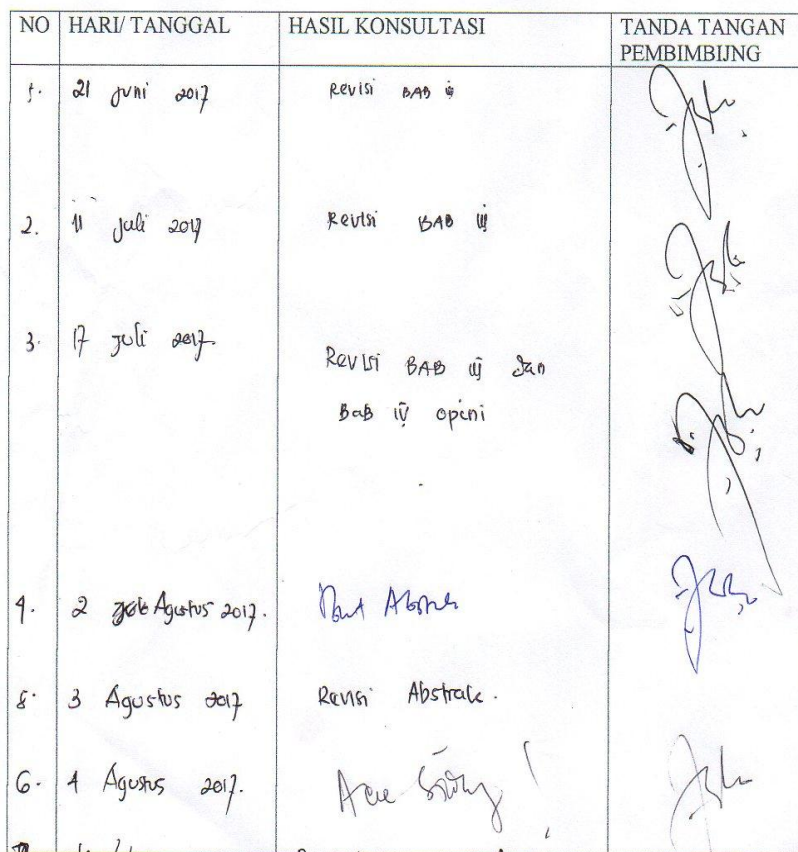 NO HARI/ TANGGAL HASIL KONSULTASI TANDA TANGAN
PEMBIMBIJNG
1. 21 juni 2017 Revisi BAB iii
2. 11 juli 2017 Revisi BAB iii
3. 17 juli 2017.
Revisi BAB iii dan
BaB iv opini
4. 2 Agustus 2017.
5. 3 Agustus 2017 Revisi Abstrak.
6. 4 Agustus 2017. Acc !